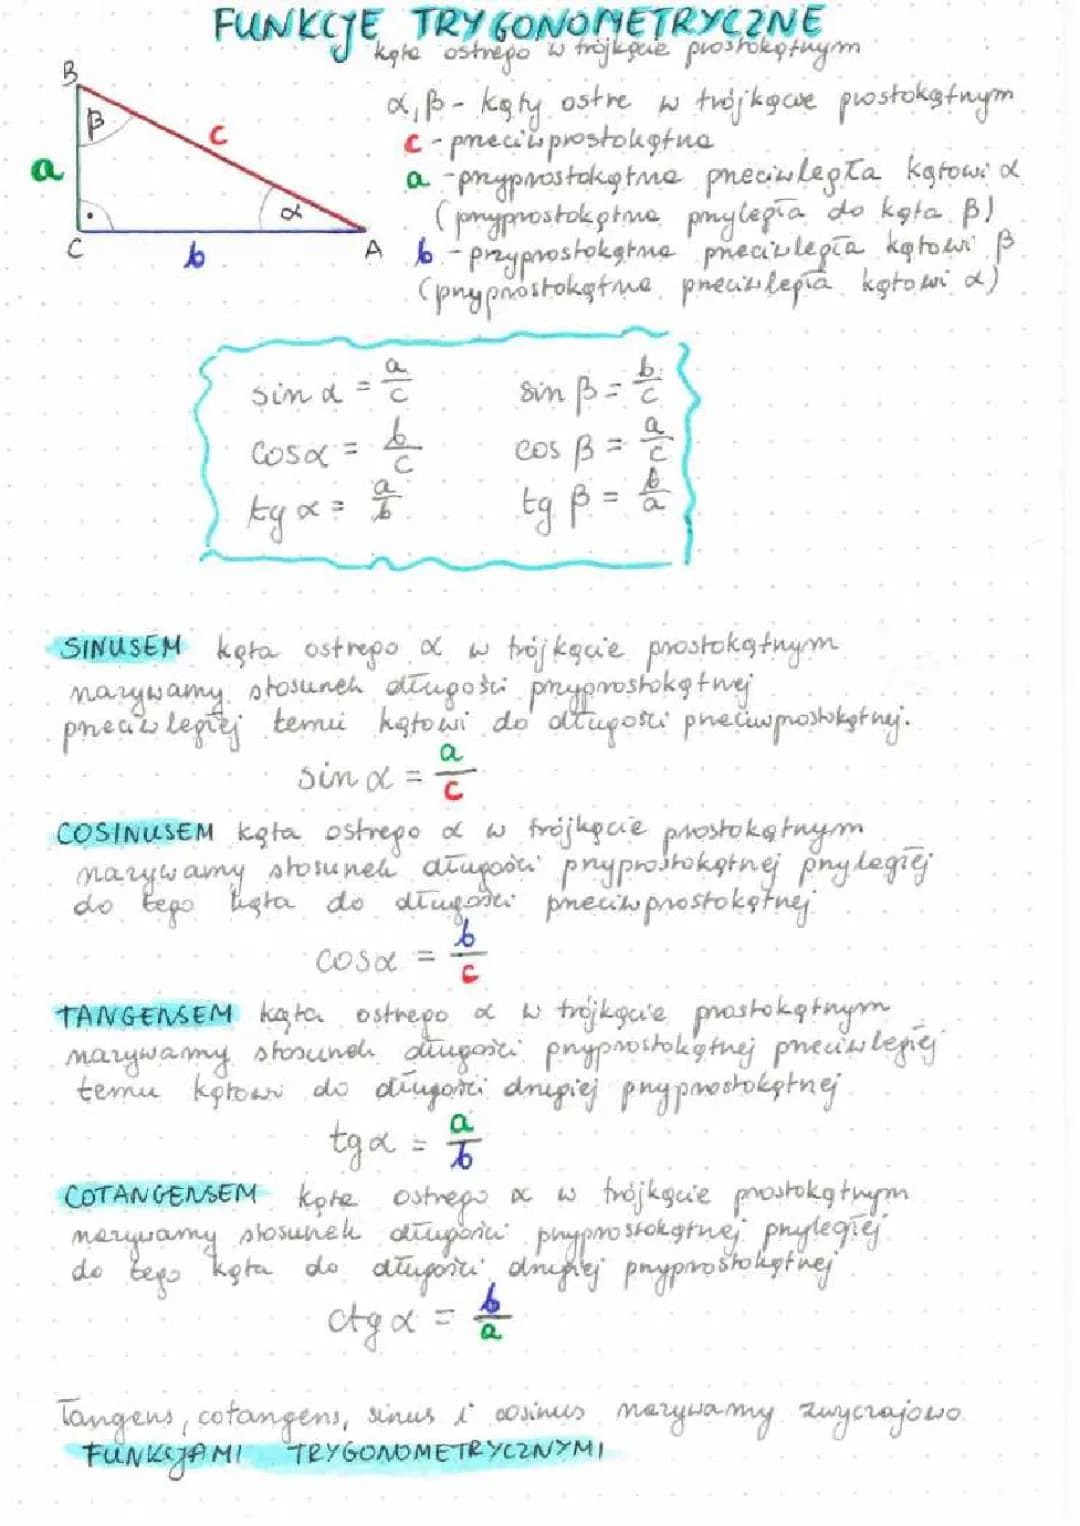 FUNKCJE TRYGONOMETRYCZNE
kąta ostrego w trójkącie prostokątnym
B
β
c
a
α
C
b
A
α, β - kąty ostre w trójkącie prostokątnym
c - przeciwprostokątna
a - przyprostokątna przeciwległa kątowi α
(przyprostokątna przyległa do kąta β)
b - przyprostokątna przeciwległa kątowi β
(przyprostokątna przeciwległa kątowi α)
sin α = a/c sin β = b/c
cos α = b/c cos β = a/c
tg α = a/b tg β = b/a
SINUSEM kąta ostrego α w trójkącie prostokątnym
nazywamy stosunek długości przyprostokątnej
przeciwległej temu kątowi do długości przeciwprostokątnej.
sin α = a/c
COSINUSEM kąta ostrego α w trójkącie prostokątnym
nazywamy stosunek długości przyprostokątnej przyległej
do tego kąta do długości przeciwprostokątnej
cos α = b/c
TANGENSEM kąta ostrego α w trójkącie prostokątnym
nazywamy stosunek długości przyprostokątnej przeciwległej
temu kątowi do długości drugiej przyprostokątnej
tg α = a/b
COTANGENSEM kąta ostrego α w trójkącie prostokątnym
nazywamy stosunek długości przyprostokątnej przyległej
do tego kąta do długości drugiej przyprostokątnej
ctg α = b/a
Tangens, cotangens, sinus i cosinus nazywamy zwyczajowo
FUNKCJAMI TRYGONOMETRYCZNYMI